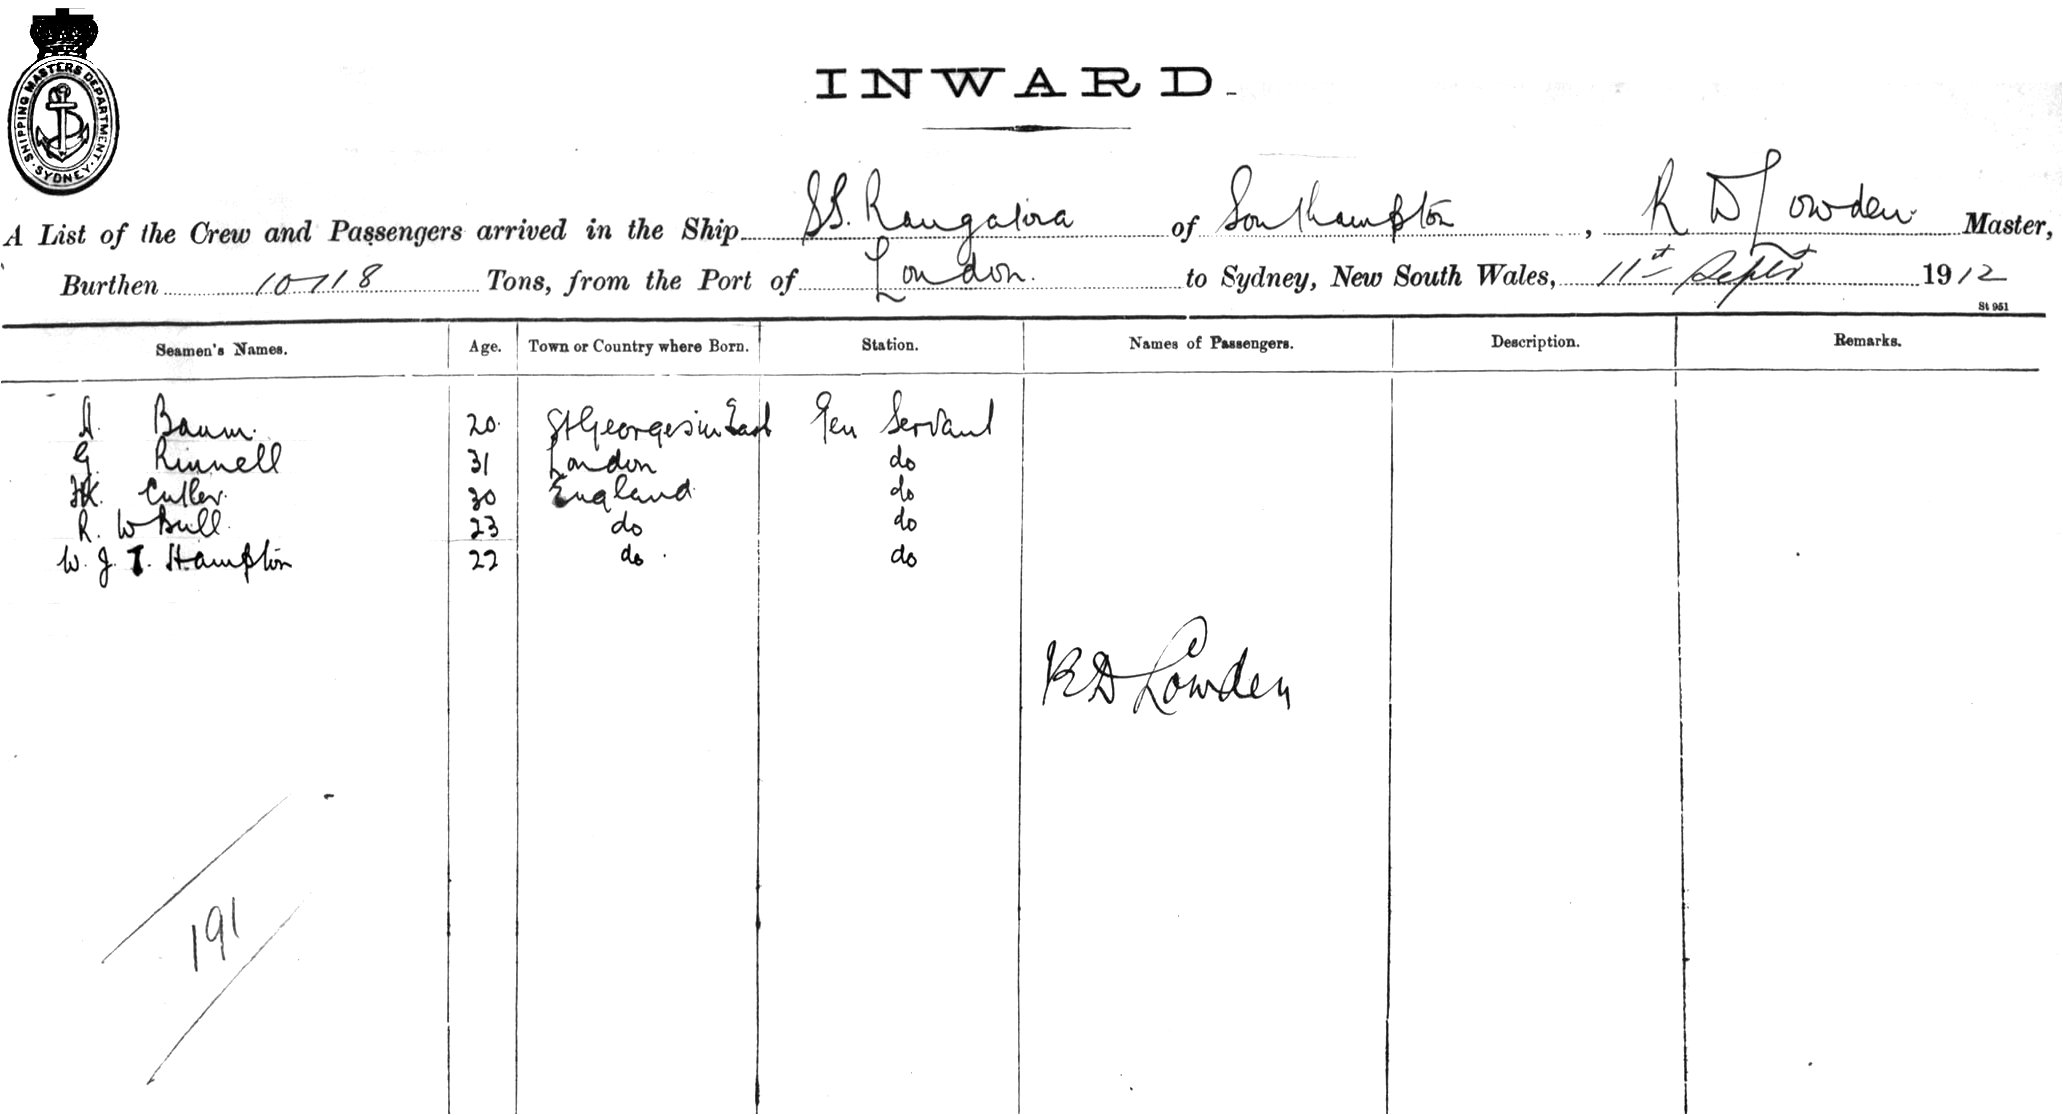 SHIPPING MASTERS DEPARTMENT · SYDNEY ·
INWARD.
A List of the Crew and Passengers arrived in the Ship SS. Rangatira of Southampton, R D Lowden Master,
Burthen 10118 Tons, from the Port of London. to Sydney, New South Wales, 11th Septr 1912
St 951
Seamen's Names. Age. Town or Country where Born. Station. Names of Passengers. Description. Remarks.
A. Baum. 20. St Georges in East Gen Servant
G. Rinnell 31 London do
Cutler. 30 England do
R. W Bull. 23 do do
W. J. T. Hampton 22 do. do
R D Lowden
191